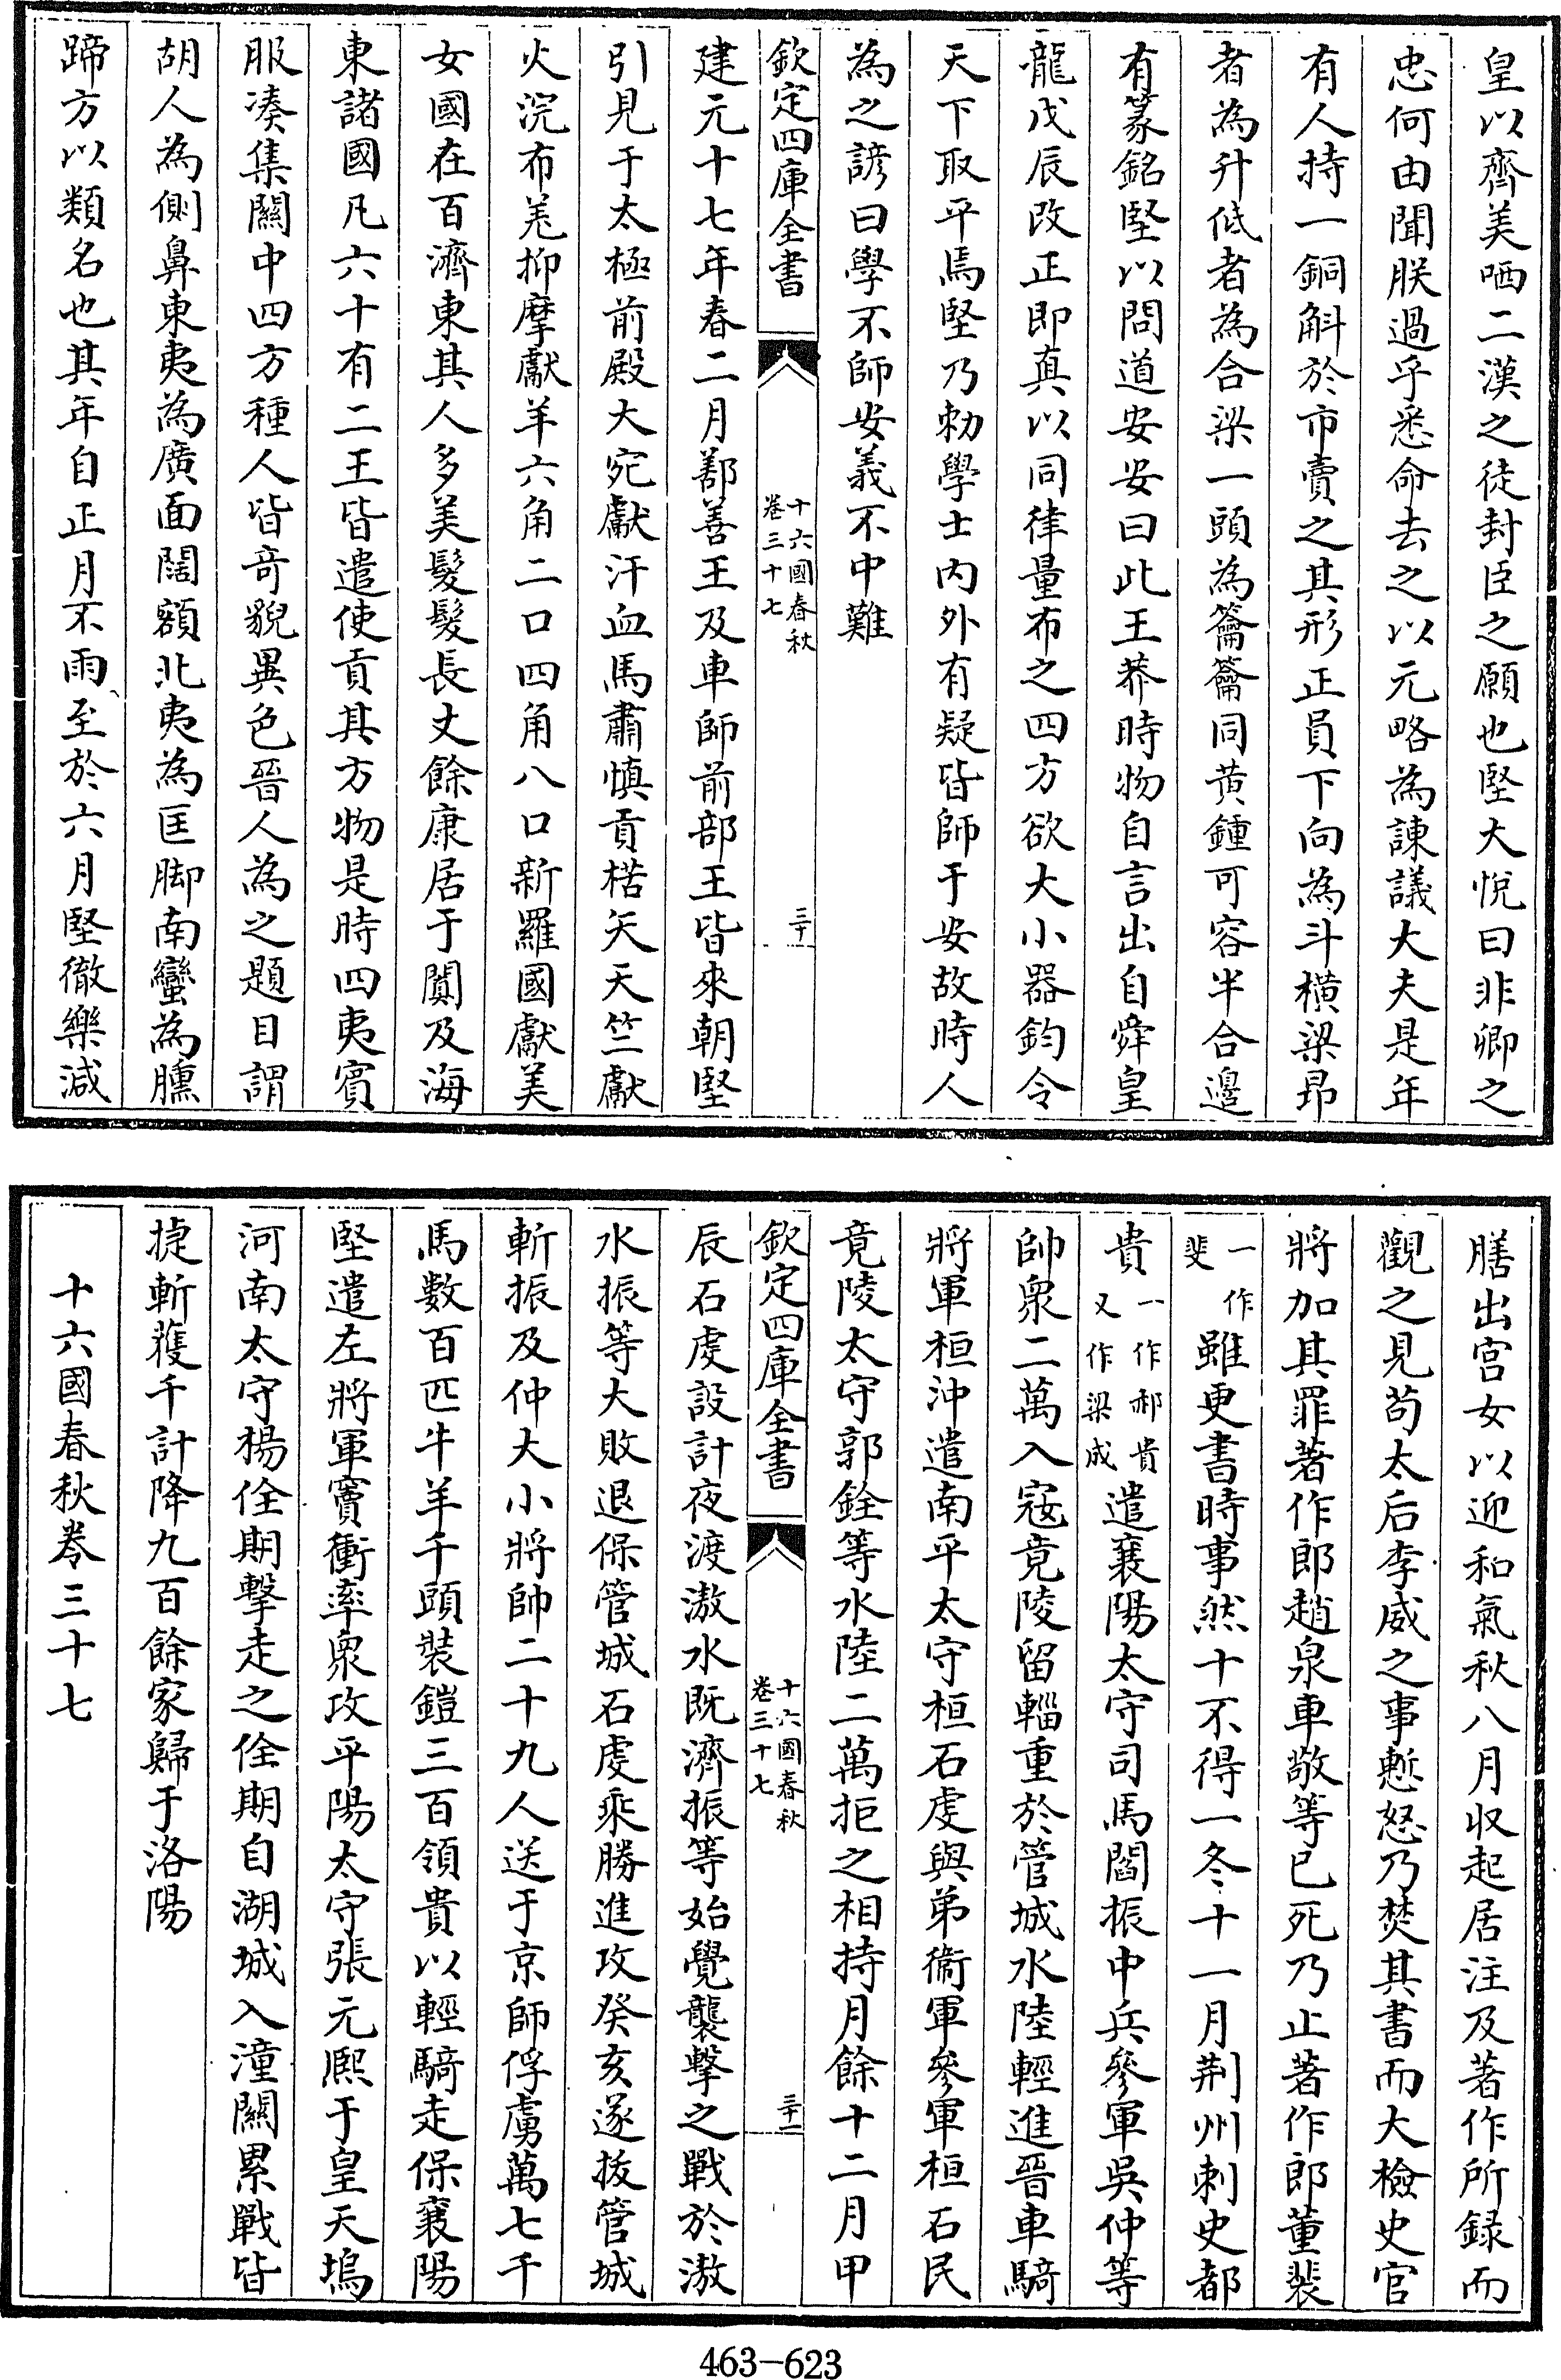 皇以齊美哂二漢之徒封臣之願也堅大悅曰非卿之
忠何由聞朕過乎悉命去之以元略為諌議大夫是年
有人持一銅斛於市賣之其形正員下向為斗横梁昻
者為升低者為合梁一頭為籥籥同黄鍾可容半合邉
有篆銘堅以問道安安曰此王莽時物自言出自舜皇
龍戊辰改正即真以同律量布之四方欲大小器鈞令
天下取平焉堅乃勅學士内外有疑皆師于安故時人
為之諺曰學不師安義不中難
欽定四庫全書
十六國春秋
卷三十七
三十
建元十七年春二月鄯善王及車師前部王皆來朝堅
引見于太極前殿大宛獻汗血馬肅慎貢楛矢天竺獻
火浣布羌抑摩獻羊六角二口四角八口新羅國獻美
女國在百濟東其人多美髮髮長丈餘康居于闐及海
東諸國凡六十有二王皆遣使貢其方物是時四夷賓
服湊集關中四方種人皆奇貌異色晉人為之題目謂
胡人為側鼻東夷為廣面闊額北夷為匡脚南蠻為臐
蹄方以類名也其年自正月不雨至於六月堅徹樂減
膳出宫女以迎和氣秋八月収起居注及著作所録而
觀之見茍太后李威之事慙怒乃焚其書而大檢史官
將加其罪著作郎趙泉車敬等已死乃止著作郎董裴
一作
斐
雖更書時事然十不得一冬十一月荆州刺史都
貴
一作郝貴
又作梁成
遣襄陽太守司馬閻振中兵參軍吳仲等
帥衆二萬入寇竟陵留輜重於管城水陸輕進晉車騎
將軍桓沖遣南平太守桓石虔與弟衞軍參軍桓石民
竟陵太守郭銓等水陸二萬拒之相持月餘十二月甲
欽定四庫全書
十六國春秋
卷三十七
三十一
辰石虔設計夜渡滶水既濟振等始覺襲撃之戰於滶
水振等大敗退保管城石虔乘勝進攻癸亥遂拔管城
斬振及仲大小將帥二十九人送于京師俘虜萬七千
馬數百匹牛羊千頭裝鎧三百領貴以輕騎走保襄陽
堅遣左將軍竇衝率衆攻平陽太守張元熈于皇天塢
河南太守楊佺期撃走之佺期自湖城入潼關累戰皆
捷斬獲千計降九百餘家歸于洛陽
十六國春秋卷三十七
463-623